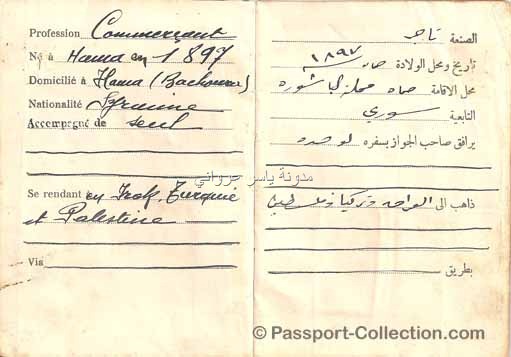 Profession Commerçant
Né à Hama en 1897
Domicilié à Hama (Bachoura)
Nationalité Syrienne
Accompagné de seul
Se rendant en Irak, Turquie
et Palestine
Via
الصنعة تاجر
تاريخ ومحل الولادة حماه ١٨٩٧
محل الاقامة حماه محلة باشورة
التابعية سوري
يرافق صاحب الجواز بسفره لوحده
ذاهب الى العراق وتركيا وفلسطين
بطريق
مدونة ياسر مرواني
© Passport-Collection.com